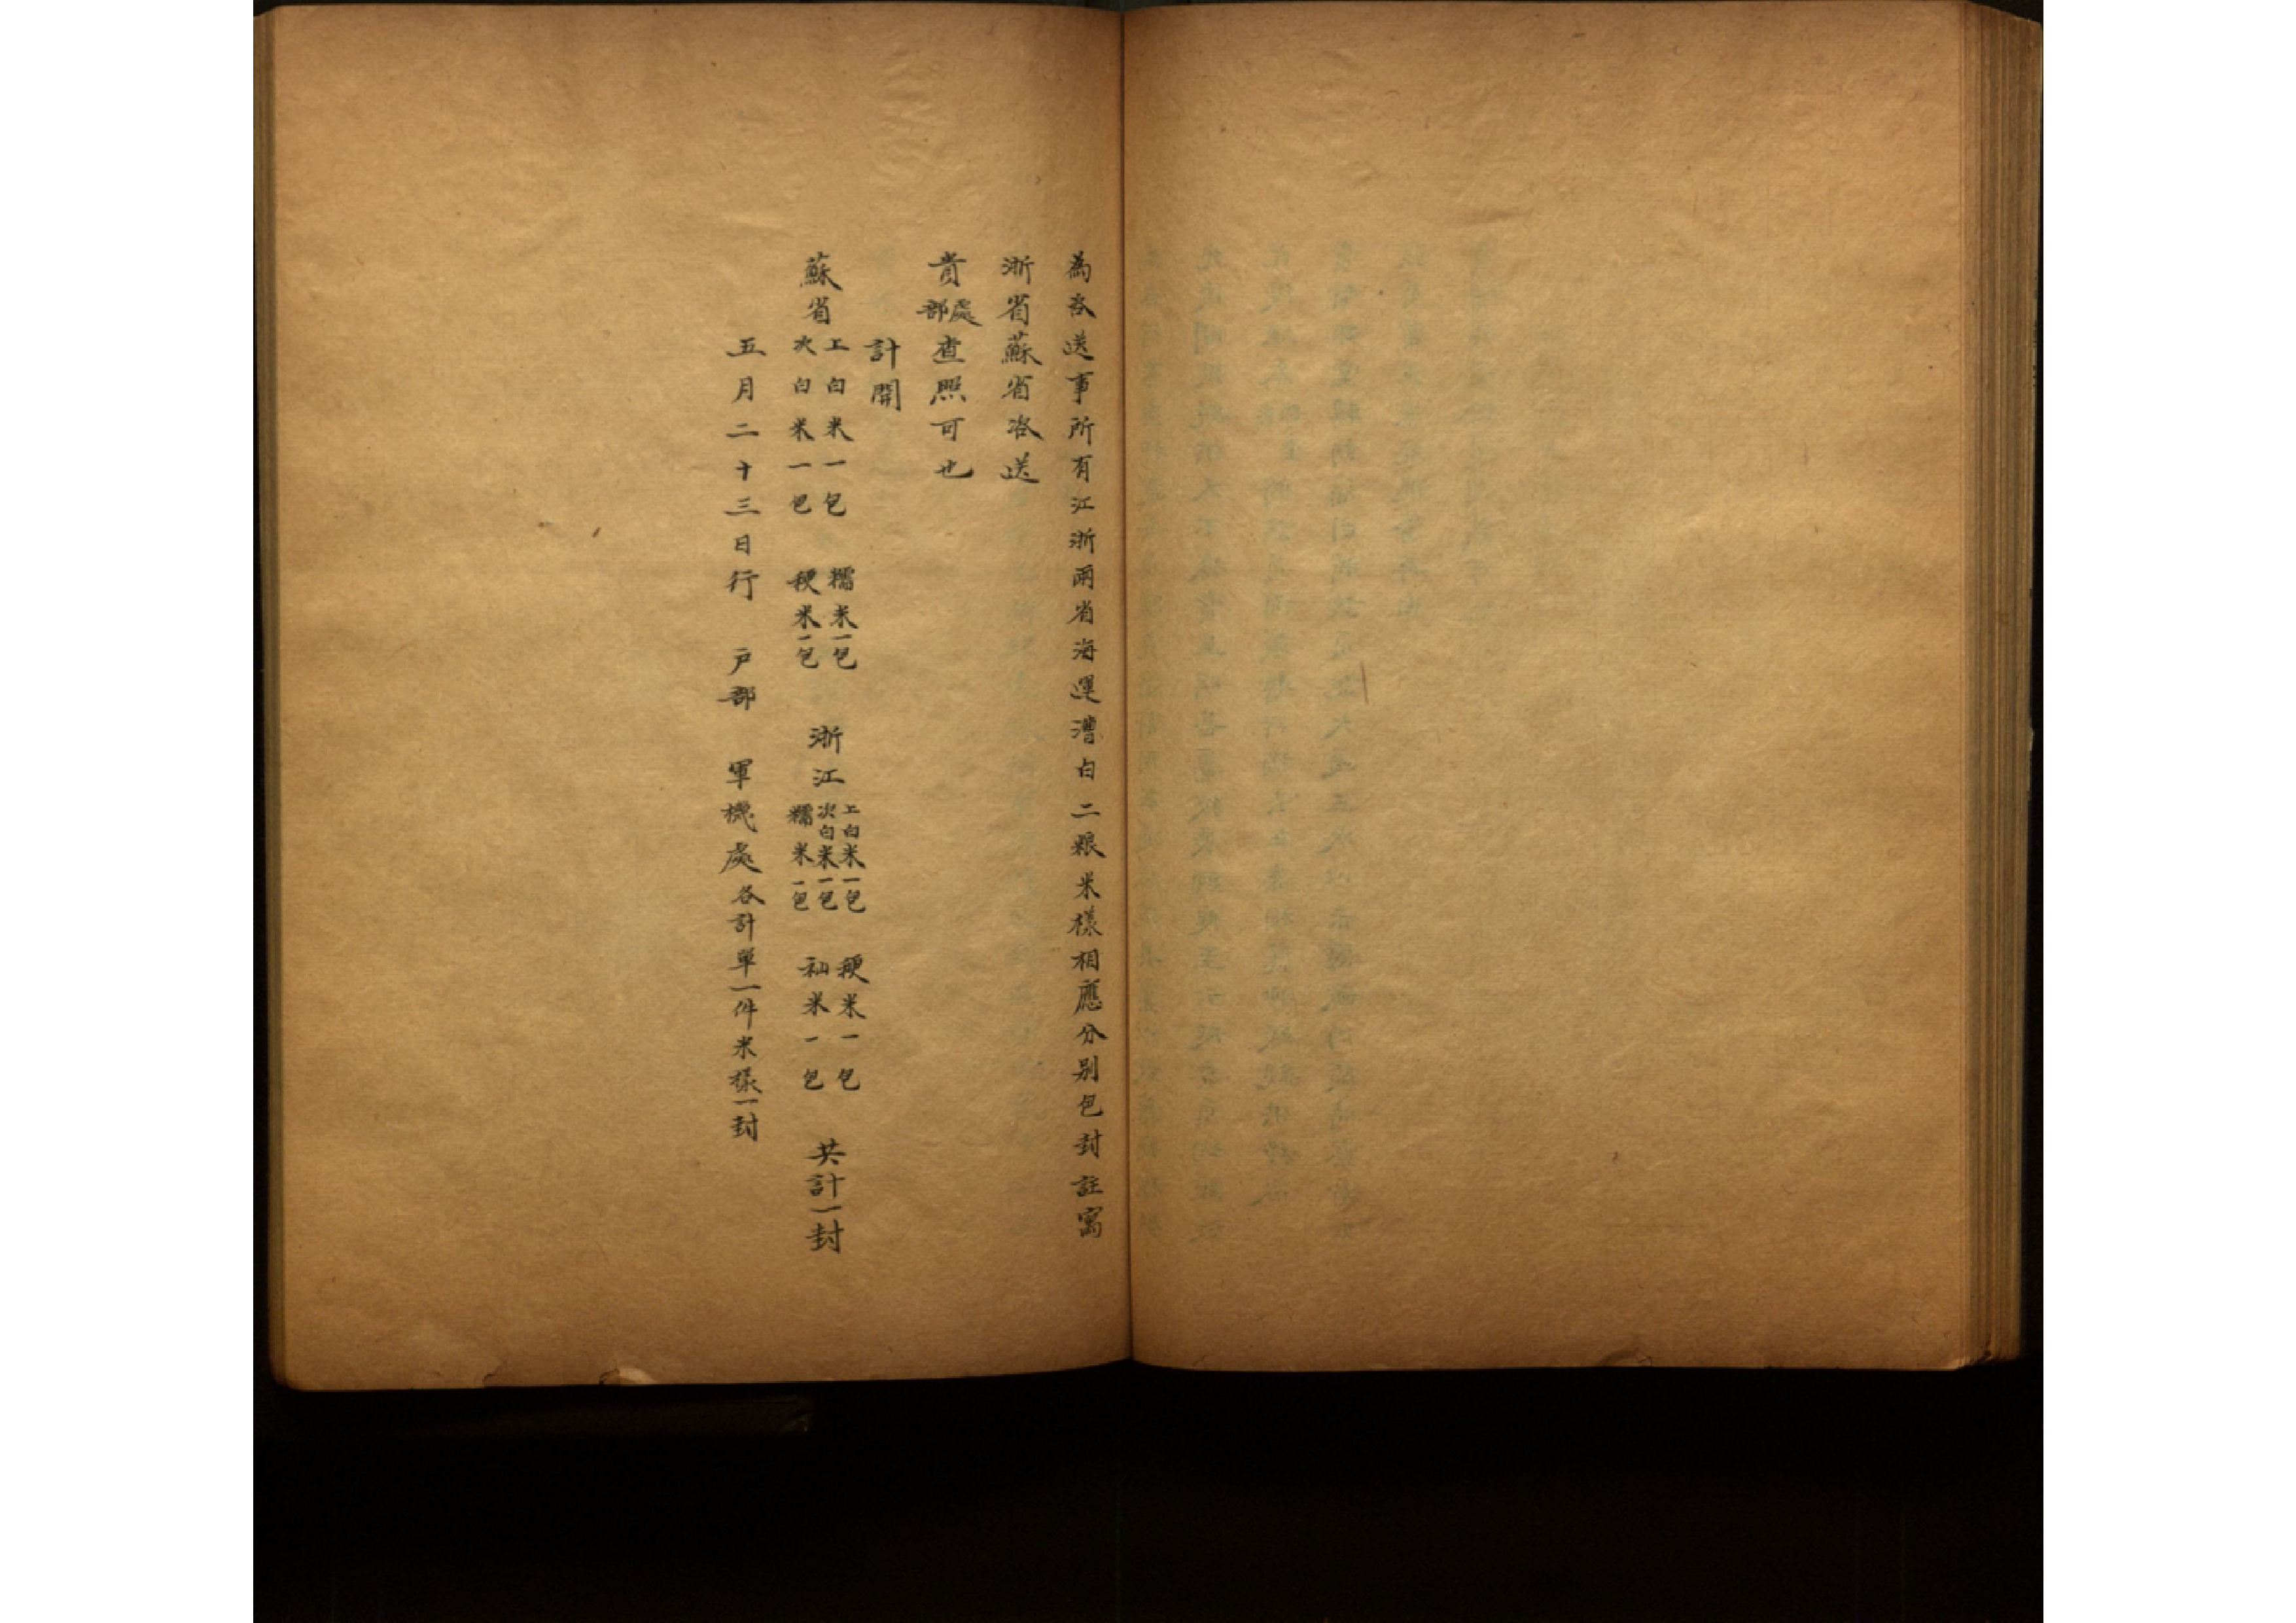 為咨送事所有江浙兩省海運漕白二粮米樣相應分别包封註寫
浙省蘇省咨送
貴處部查照可也
計開
蘇省上白米一包次白米一包 糯米一包粳米一包 浙江上白米一包次白米一包糯米一包 粳米一包籼米一包 共計一封
五月二十三日行 戸部 軍機處各計單一件米樣一封